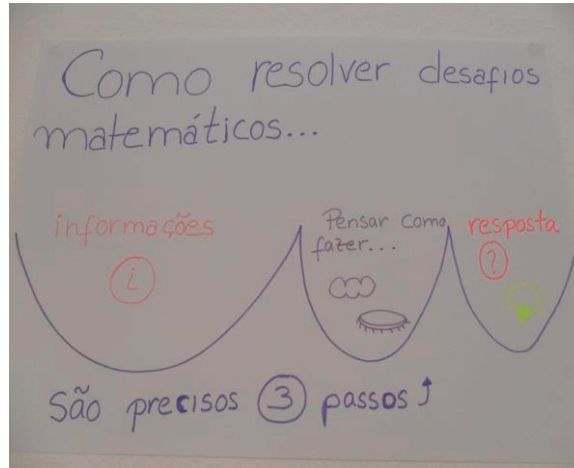 Como resolver desafios
matemáticos...
informações
i
Pensar como
fazer...
resposta
?
São precisos 3 passos